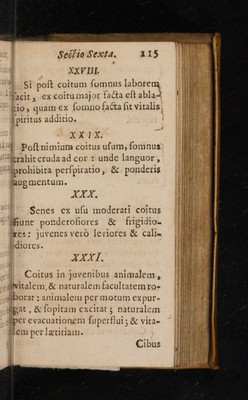 Sectio Sexta. 215
XXVIII.
Si post coitum somnus laborem
facit, ex coitu major facta est abla-
tio, quam ex somno facta sit vitalis
spiritus additio.
XXIX.
Post nimium coitus usum, somnus
trahit cruda ad cor: unde languor,
prohibita perspiratio, & ponderis
augmentum.
XXX.
Senes ex usu moderati coitus
fiunt ponderosiores & frigidio-
res: juvenes verò leviores & cali-
diores.
XXXI.
Coitus in juvenibus animalem,
vitalem, & naturalem facultatem ro-
borat: animalem per motum expur-
gat, & sopitam excitat; naturalem
per evacuationem superflui; & vita-
lem per lætitiam.
Cibus